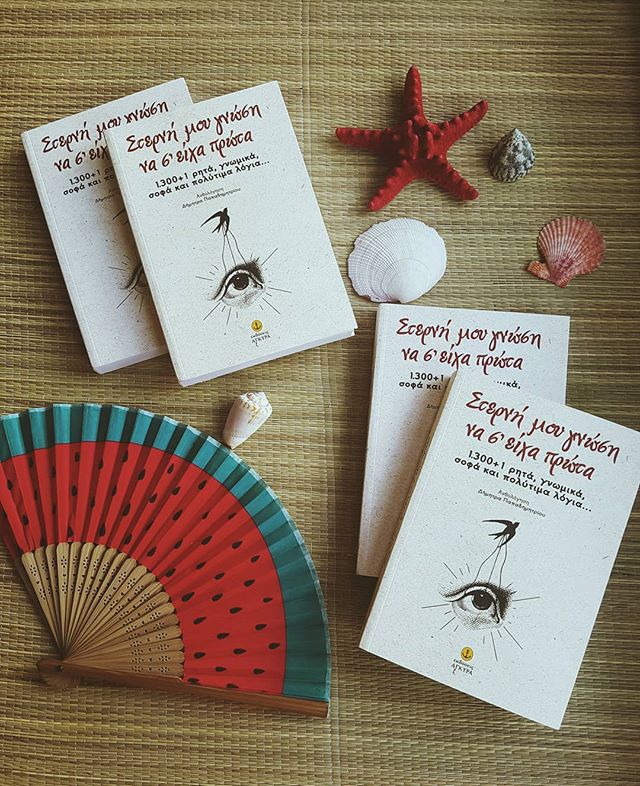 Στερνή μου γνώση
1.300+1 ρητά,
σοφά και π
Στερνή μου γνώση
να σ' είχα πρώτα
1.300+1 ρητά, γνωμικά,
σοφά και πολύτιμα λόγια...
Ανθολόγηση
Δήμητρα Παπαδημητρίου
εκδόσεις
ΑΓΚΥΡΑ
Στερνή μου γνώση
να σ' είχα πρώτα
1.300+1 γνωμικά,
σοφά και
Στερνή μου γνώση
να σ' είχα πρώτα
1.300+1 ρητά, γνωμικά,
σοφά και πολύτιμα λόγια...
Ανθολόγηση
Δήμητρα Παπαδημητρίου
εκδόσεις
ΑΓΚΥΡΑ